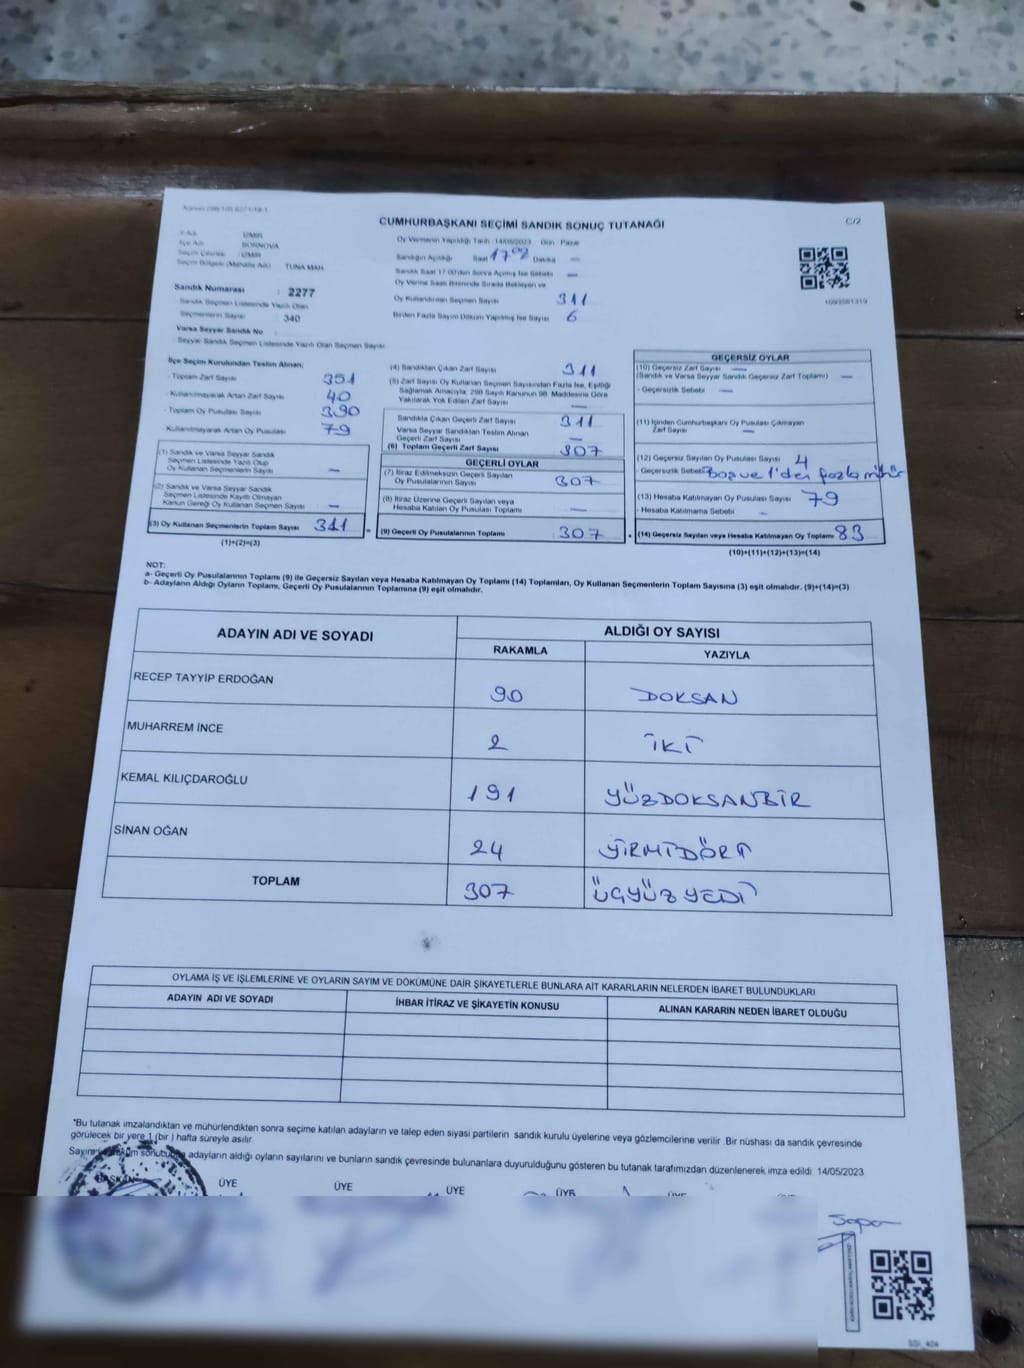 CUMHURBAŞKANI SEÇİMİ SANDIK SONUÇ TUTANAĞI
C/2
İl Adı İZMİR
İlçe Adı BORNOVA
Seçim Çevresi İZMİR
Seçim Bölgesi (Mahalle Adı) TUNA MAH
Sandık Numarası : 2277
Sandık Seçmen Listesinde Yazılı Olan
Seçmenlerin Sayısı 340
Varsa Seyyar Sandık No
Seyyar Sandık Seçmen Listesinde Yazılı Olan Seçmen Sayısı
Oy Vermenin Yapıldığı Tarih 14/05/2023 Gün Pazar
Sandığın Açıldığı Saat 17 02 Dakika —
Sandık Saat 17:00'den Sonra Açılmış İse Sebebi —
Oy Verme Saati Bitiminde Sırada Bekleyen ve
Oy Kullandırılan Seçmen Sayısı 311
Birden Fazla Sayım Döküm Yapılmış İse Sayısı 6
1093581319
İlçe Seçim Kurulundan Teslim Alınan;
- Toplam Zarf Sayısı 351
- Kullanılmayarak Artan Zarf Sayısı 40
- Toplam Oy Pusulası Sayısı 390
- Kullanılmayarak Artan Oy Pusulası 79
(1) Sandık ve Varsa Seyyar Sandık
Seçmen Listesinde Yazılı Olup
Oy Kullanan Seçmenlerin Sayısı —
(2) Sandık ve Varsa Seyyar Sandık
Seçmen Listesinde Kayıtlı Olmayan
Kanun Gereği Oy Kullanan Seçmen Sayısı —
(3) Oy Kullanan Seçmenlerin Toplam Sayısı 311
(1)+(2)=(3)
(4) Sandıktan Çıkan Zarf Sayısı 311
(5) Zarf Sayısı Oy Kullanan Seçmen Sayısından Fazla İse, Eşitliği
Sağlamak Amacıyla, 298 Sayılı Kanunun 98. Maddesine Göre
Yakılarak Yok Edilen Zarf Sayısı —
Sandıkta Çıkan Geçerli Zarf Sayısı 311
Varsa Seyyar Sandıktan Teslim Alınan
Geçerli Zarf Sayısı —
(6) Toplam Geçerli Zarf Sayısı 307
GEÇERLİ OYLAR
(7) İtiraz Edilmeksizin Geçerli Sayılan
Oy Pusulalarının Sayısı 307
(8) İtiraz Üzerine Geçerli Sayılan veya
Hesaba Katılan Oy Pusulası Toplamı —
(9) Geçerli Oy Pusulalarının Toplamı 307
GEÇERSİZ OYLAR
(10) Geçersiz Zarf Sayısı —
(Sandık ve Varsa Seyyar Sandık Geçersiz Zarf Toplamı) —
- Geçersizlik Sebebi —
(11) İçinden Cumhurbaşkanı Oy Pusulası Çıkmayan
Zarf Sayısı —
(12) Geçersiz Sayılan Oy Pusulası Sayısı 4
- Geçersizlik Sebebi Boş ve 1'den fazla mühür
(13) Hesaba Katılmayan Oy Pusulası Sayısı 79
- Hesaba Katılmama Sebebi —
(14) Geçersiz Sayılan veya Hesaba Katılmayan Oy Toplamı 83
(10)+(11)+(12)+(13)=(14)
NOT:
a- Geçerli Oy Pusulalarının Toplamı (9) ile Geçersiz Sayılan veya Hesaba Katılmayan Oy Toplamı (14) Toplamları, Oy Kullanan Seçmenlerin Toplam Sayısına (3) eşit olmalıdır. (9)+(14)=(3)
b- Adayların Aldığı Oyların Toplamı, Geçerli Oy Pusulalarının Toplamına (9) eşit olmalıdır.
ADAYIN ADI VE SOYADI ALDIĞI OY SAYISI
RAKAMLA YAZIYLA
RECEP TAYYİP ERDOĞAN 90 DOKSAN
MUHARREM İNCE 2 İKİ
KEMAL KILIÇDAROĞLU 191 YÜZDOKSANBİR
SİNAN OĞAN 24 YİRMİDÖRT
TOPLAM 307 ÜÇYÜZYEDİ
OYLAMA İŞ VE İŞLEMLERİNE VE OYLARIN SAYIM VE DÖKÜMÜNE DAİR ŞİKAYETLERLE BUNLARA AİT KARARLARIN NELERDEN İBARET BULUNDUKLARI
ADAYIN ADI VE SOYADI İHBAR İTİRAZ VE ŞİKAYETİN KONUSU ALINAN KARARIN NEDEN İBARET OLDUĞU
*Bu tutanak imzalandıktan ve mühürlendikten sonra seçime katılan adayların ve talep eden siyasi partilerin sandık kurulu üyelerine veya gözlemcilerine verilir. Bir nüshası da sandık çevresinde
görülecek bir yere 1 (bir ) hafta süreyle asılır.
Sayım döküm sonucu adayların aldığı oyların sayılarını ve bunların sandık çevresinde bulunanlara duyurulduğunu gösteren bu tutanak tarafımızdan düzenlenerek imza edildi. 14/05/2023
BAŞKAN ÜYE ÜYE ÜYE ÜYE ÜYE